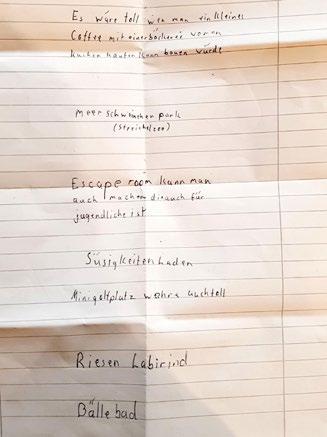 Es wäre toll wen man ein kleines
Coffee mit einer bäckerei woran
kuchen kaufen kann bauen würde
meerschweinchen park
(Streichelzoo)
Escape room kann man
auch machen die auch für
jugendliche ist
Süsigkeitenladen
Minigolfplatz währe auch toll
Riesen Labirind
Bällebad